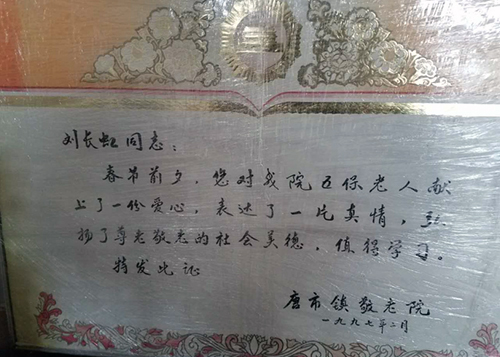 刘长虹同志：
春节前夕，您对我院五保老人献
上了一份爱心，表达了一片真情，弘
扬了尊老敬老的社会美德，值得学习。
特发此证
唐市镇敬老院
一九九七年二月